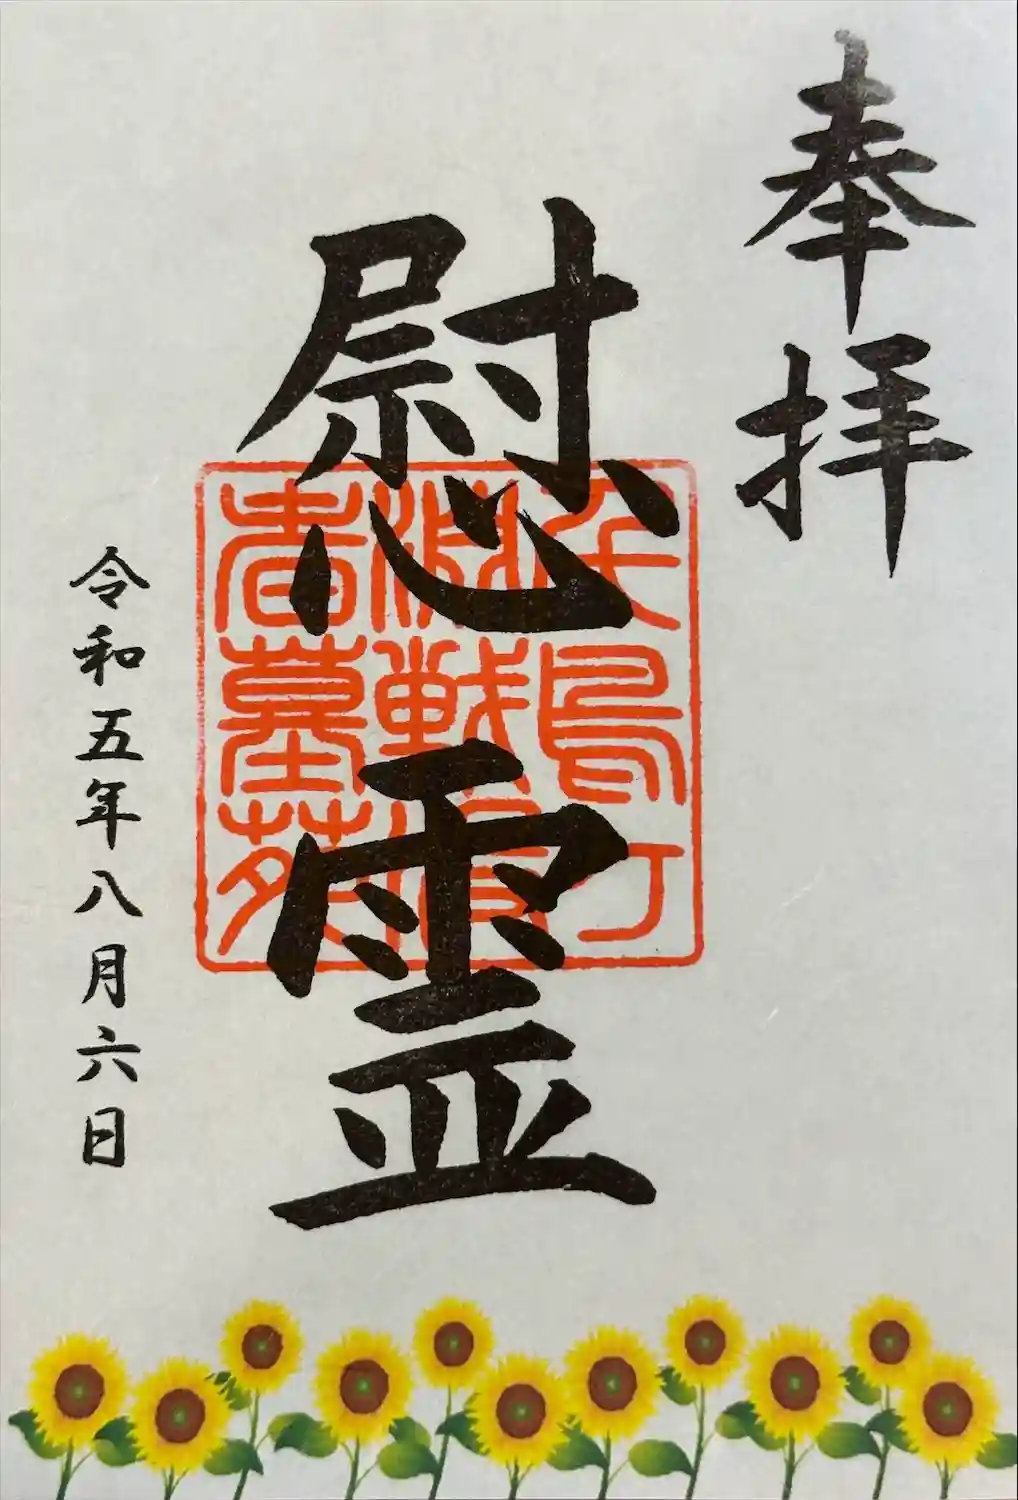 奉拝
慰霊
千鳥ケ
淵戦没
者墓苑
令和五年八月六日